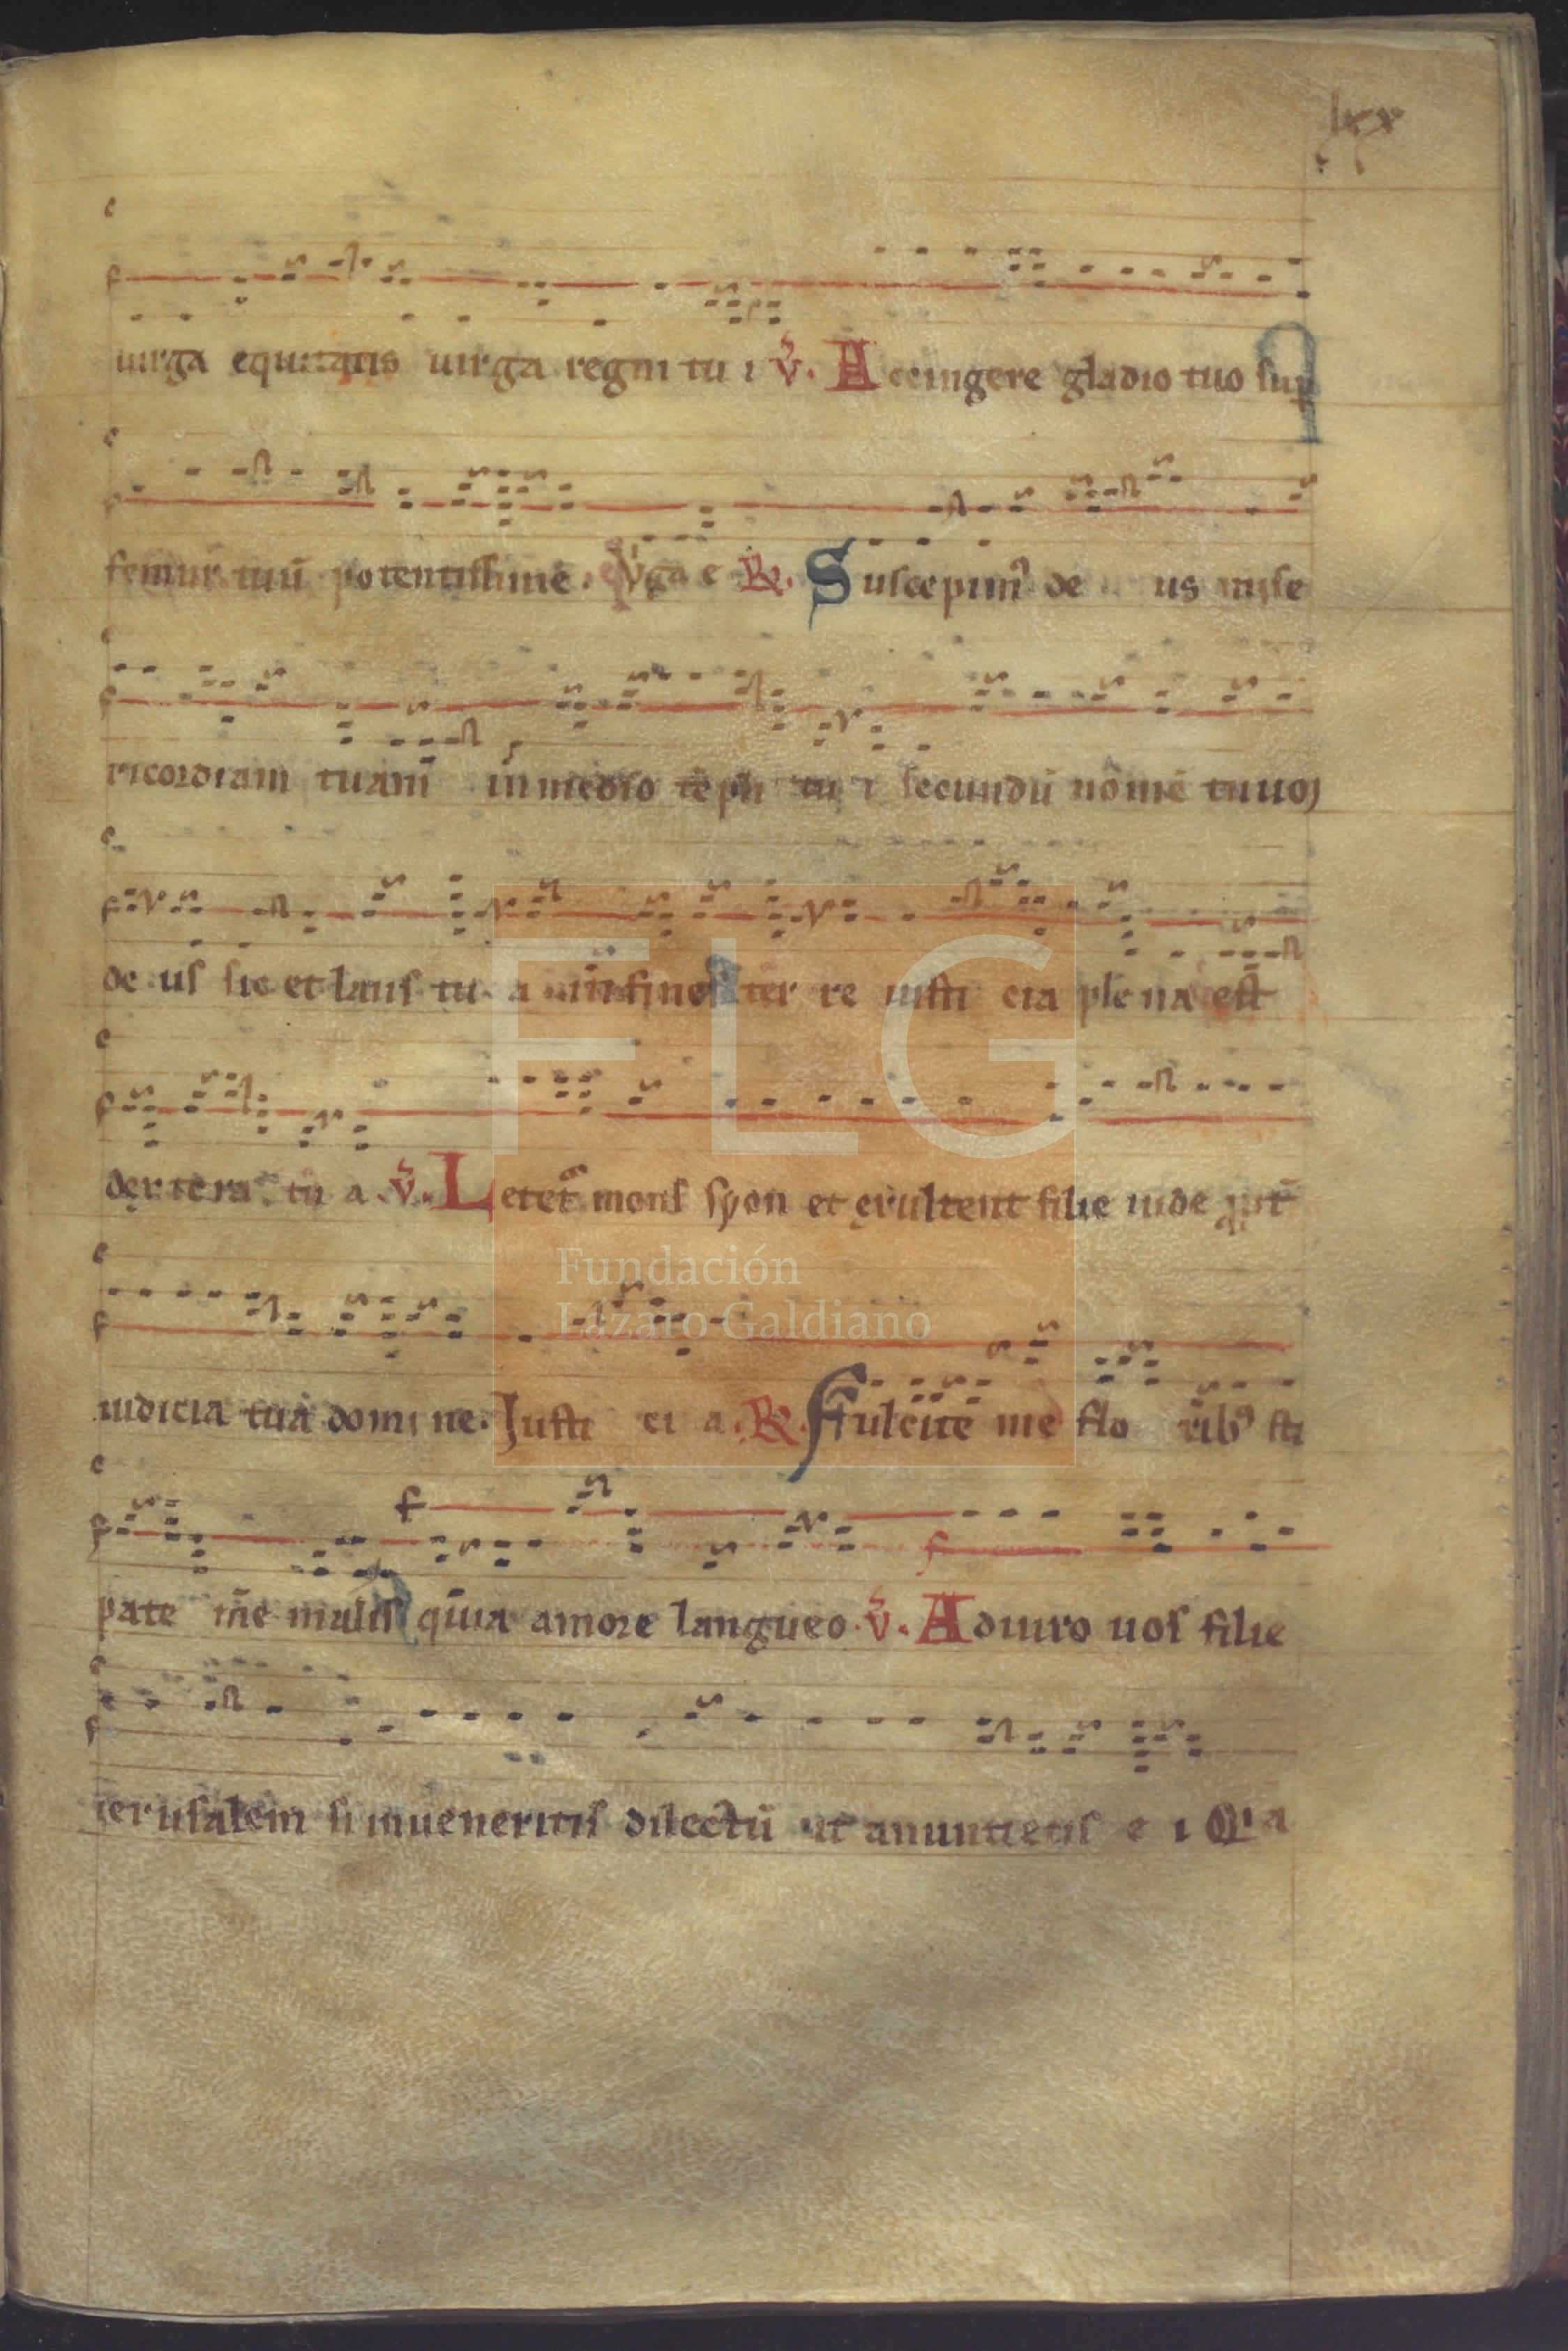 lxx
uirga equitatis uirga regni tu i V̉. Accingere gladio tuo sup
femur tuū potentissime. Vg̉a e R. Suscepim⁹ de us mise
ricordiam tuam in medio tēpli tu i secundū nomē tuuꝫ
de us sic et laus tu a in fines ter re iusti cia plena est
dextera tu a. V̉. Letet᷑ mons syon et exultent filie iude ꝓpt̄
iudicia tua domi ne. Justi ci a. R. Fulcite me flo rib⁹ sti
pate me malis quia amore langueo. V̉. Adiuro uos filie
ierusalem si inueneritis dilectū ut anuntietis e i Qͥa
FLG
Fundación
Lázaro Galdiano